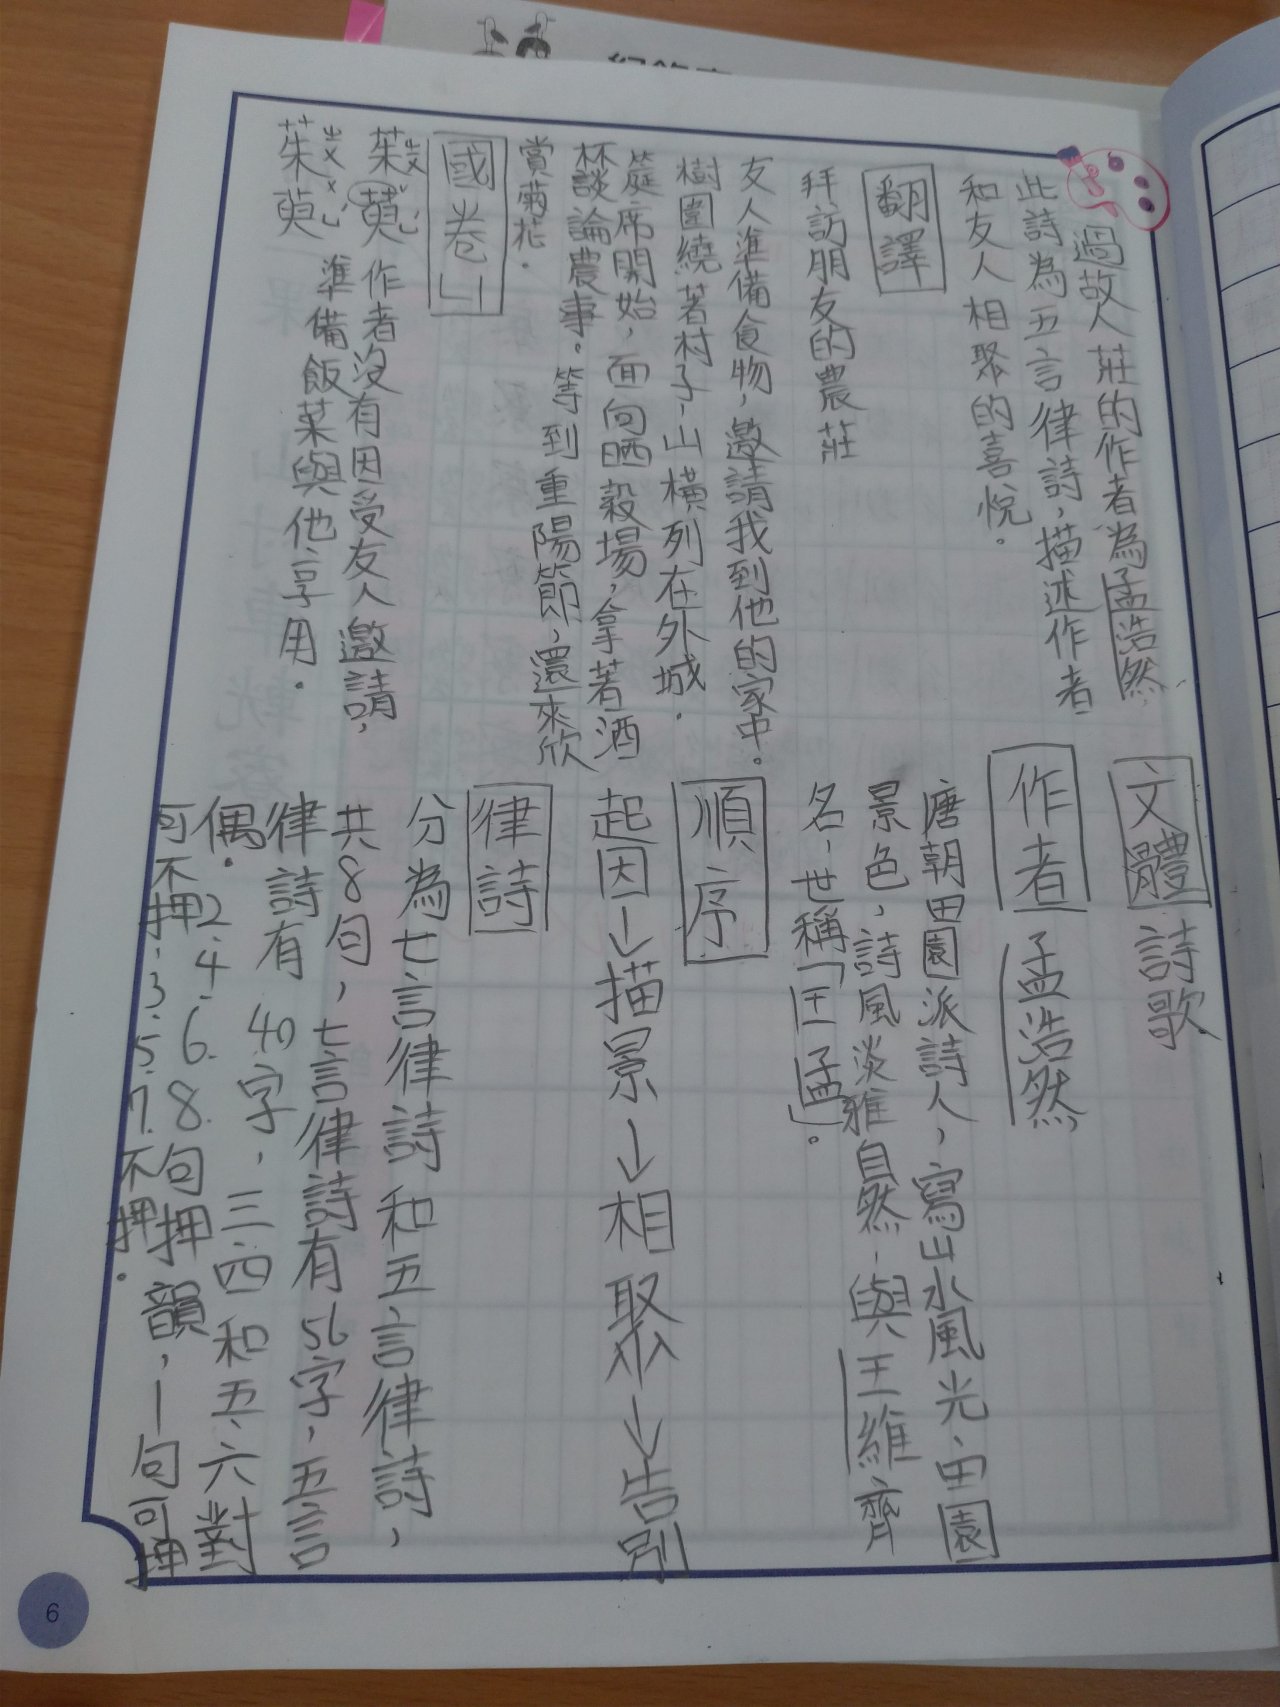 過故人莊的作者為孟浩然,
此詩為五言律詩,描述作者
和友人相聚的喜悅。
翻譯
拜訪朋友的農莊
友人準備食物,邀請我到他的家中。
樹圍繞著村子,山橫列在外城.
筳席開始,面向晒穀場,拿著酒
杯談論農事。等到重陽節,還來欣
賞菊花.
國卷
茱萸 作者沒有因受友人邀請,
茱萸 準備飯菜與他享用.
文體 詩歌
作者 孟浩然
唐朝田園派詩人,寫山水風光、田園
景色,詩風淡雅自然,與王維齊
名,世稱「王孟」。
順序
起因→描景→相聚→告別
律詩
分為七言律詩和五言律詩,
共8句,七言律詩有56字,五言
律詩有40字,三、四和五、六對
偶.2.4.6.8.句押韻,一句可押
可不押.3.5.7.不押.
6